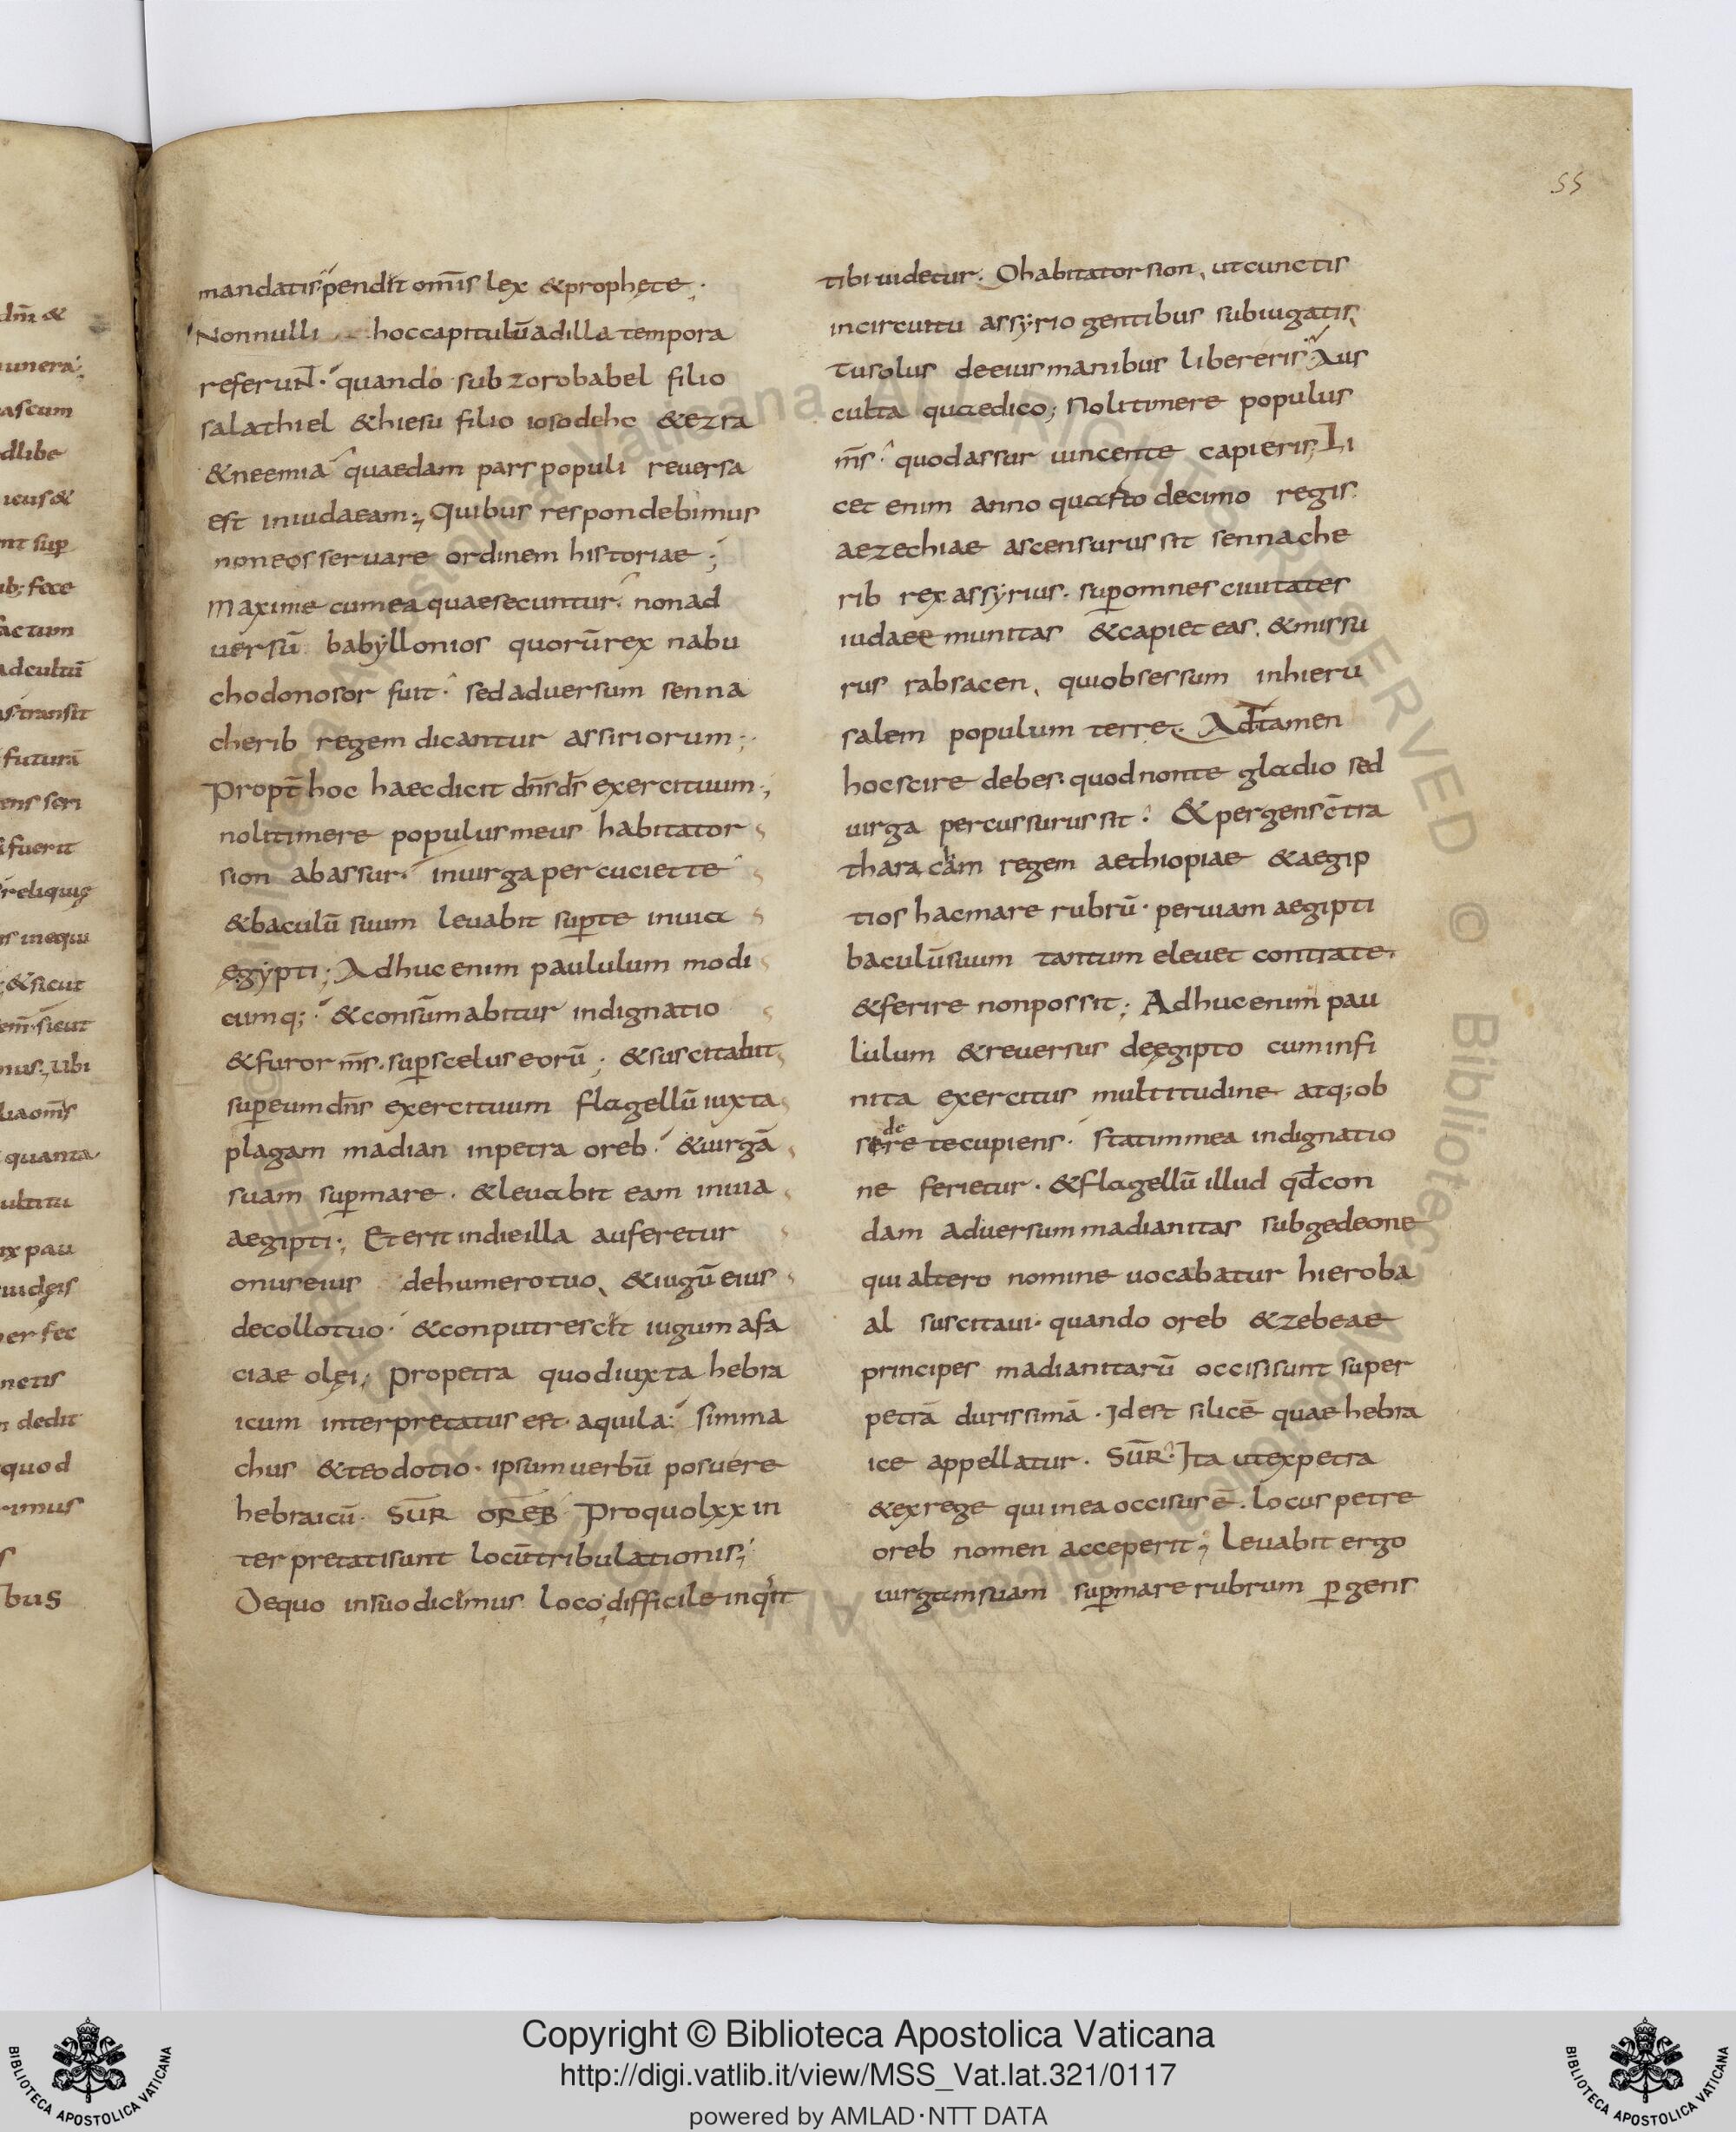 dñi &
unera;
ascum
dlibe
icus&
nt sup
ub; fece
factum
adcultū
astransit
futurā
ens seri
fuerit
reliquię
s inequi
;&sicut
em sicut
mus; Ubi
liaom̄s
quanta
ultitu
ux pau
uidęis
per fec
netis
n dedit
quod
rimus
s
bus
mandatis pendit om̄is lex &prophęte;
Nonnulli hoccapitulū adilla tempora
referuNT. quando sub zorobabel filio
salathiel &hiesu filio iosodehc &ezra
&neemia quaedam pars populi reuersa
est iniudaeam; Quibus respondebimus
noneos seruare ordinem historiae;
maxime cumea quaesecuntur. nonad
uersū babyllonios quorū rex nabu
chodonosor fuit. sed aduersum senna
cherib regem dicantur assiriorum;
Propt̄ hoc haec dicit dn̄s ds̄ exercituum;
nolitimere populus meus habitator
sion abassur. inuirga percuciet te
&baculū suum leuabit sup te inuia
ęgypti; Adhuc enim paululum modi
cumq; &consūmabitur indignatio
&furor m̄s. sup scelus eorū; &suscitabit
sup eum dn̄s exercituum flagellū iuxta
plagam madian inpetra oreb. &uirgā
suam sup mare. &leuabit eam inuia
aegipti; Et erit indie illa auferetur
onus eius dehumero tuo, &iugū eius
decollo tuo. &conputrescit iugum afa
ciae olęi; Propetra quod iuxta hebra
icum interpretatus est aquila. simma
chus &teodotio. ipsum uerbū posuere
hebraicū. SŪR OREB Proquo lxx in
terpretati sunt locū tribulationis;
Dequo insuo dicimus loco, difficile inqt
55
tibi uidetur. O habitator sion, ut cunctis
incircuitu assyrio gentibus subiugatis,
tu solus deeius manibus libereris. Aus
culta quae dico; Noli timere populus
m̄s. quod assur uincente capieris; Li
cet enim anno quarto decimo regis
aezechiae ascensurus sit sennache
rib rex assyrius. sup omnes ciuitates
iudaeę munitas &capiet eas. &missu
rus rabsacen, qui obsessum inhieru
salem populum terre. Adtamen
hoc scire debes. quod nonte gladio sed
uirga percussurus sit. & pergens cō̄tra
tharacham regem aethiopiae &aegip
tios hac mare rubrū. per uiam aegipti
baculū suum tantum eleuet contra te.
&ferire non possit; Adhuc enim pau
lulum &reuersus deęgipto cum infi
nita exercitus multitudine atq; ob
sedere te cupiens. statim mea indignatio
ne ferietur. &flagellū illud qđ con
dam aduersum madianitas sub gedeone
qui altero nomine uocabatur hieroba
al suscitaui. quando oreb &zebeae
principes madianitarū occisi sunt super
petrā durissimā. Idest silicē quae hebra
ice appellatur. SŪR. Ita ut ex petra
&ex rege qui inea occisus ē. locus petre
oreb nomen acceperit; Leuabit ergo
uirgam suam sup mare rubrum pgens
Copyright © Biblioteca Apostolica Vaticana
http://digi.vatlib.it/view/MSS_Vat.lat.321/0117
powered by AMLAD·NTT DATA
BIBLIOTECA APOSTOLICA VATICANA
BIBLIOTECA APOSTOLICA VATICANA